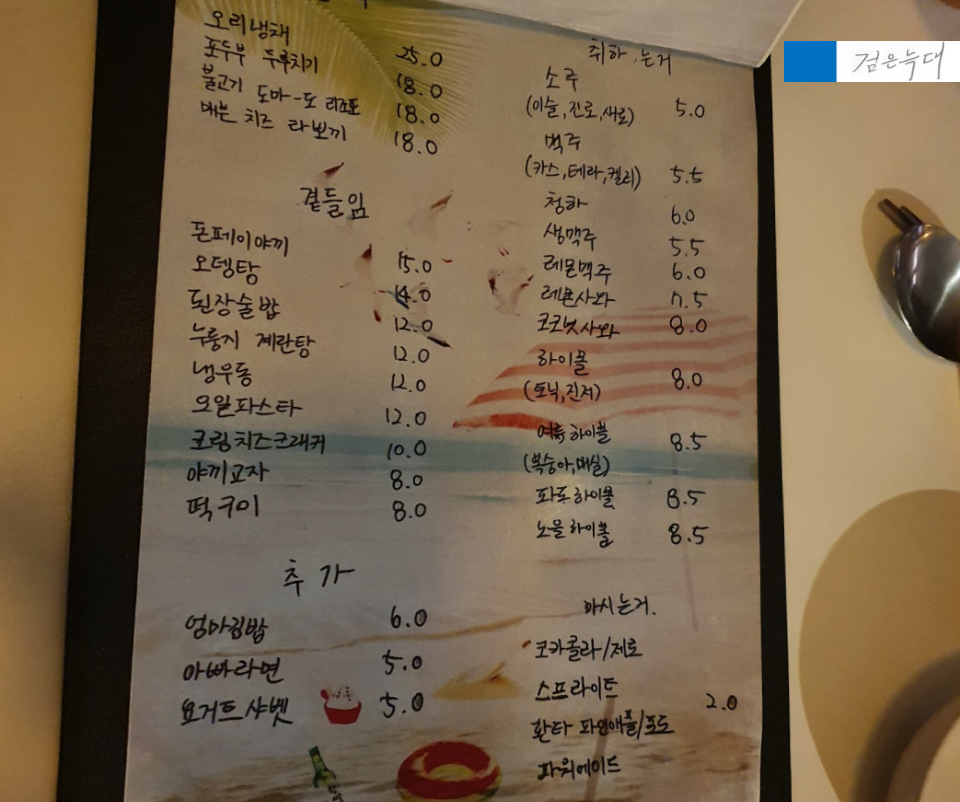 오리냉채 25.0
포두부 두루치기 18.0
불고기 도마-도 리조또 18.0
매콘 치즈 라뽀끼 18.0
곁들임
돈페이야끼 15.0
오뎅탕 14.0
된장술밥 12.0
누룽지 계란탕 12.0
냉우동 12.0
오일파스타 12.0
크림치즈크래커 10.0
야끼교자 8.0
떡구이 8.0
추가
엄마김밥 6.0
아빠라면 5.0
요거트샤벳 5.0
취하는거
소주
(이슬,진로,새로) 5.0
맥주
(카스,테라,켈리) 5.5
청하 6.0
생맥주 5.5
레몬맥주 6.0
레몬사와 7.5
코코넛사와 8.0
하이볼
(토닉,진저) 8.0
여름하이볼
(복숭아,매실) 8.5
파도하이볼 8.5
노을하이볼 8.5
마시는거.
코카콜라/제로
스프라이트
환타 파인애플/포도 2.0
파워에이드
검은늑대